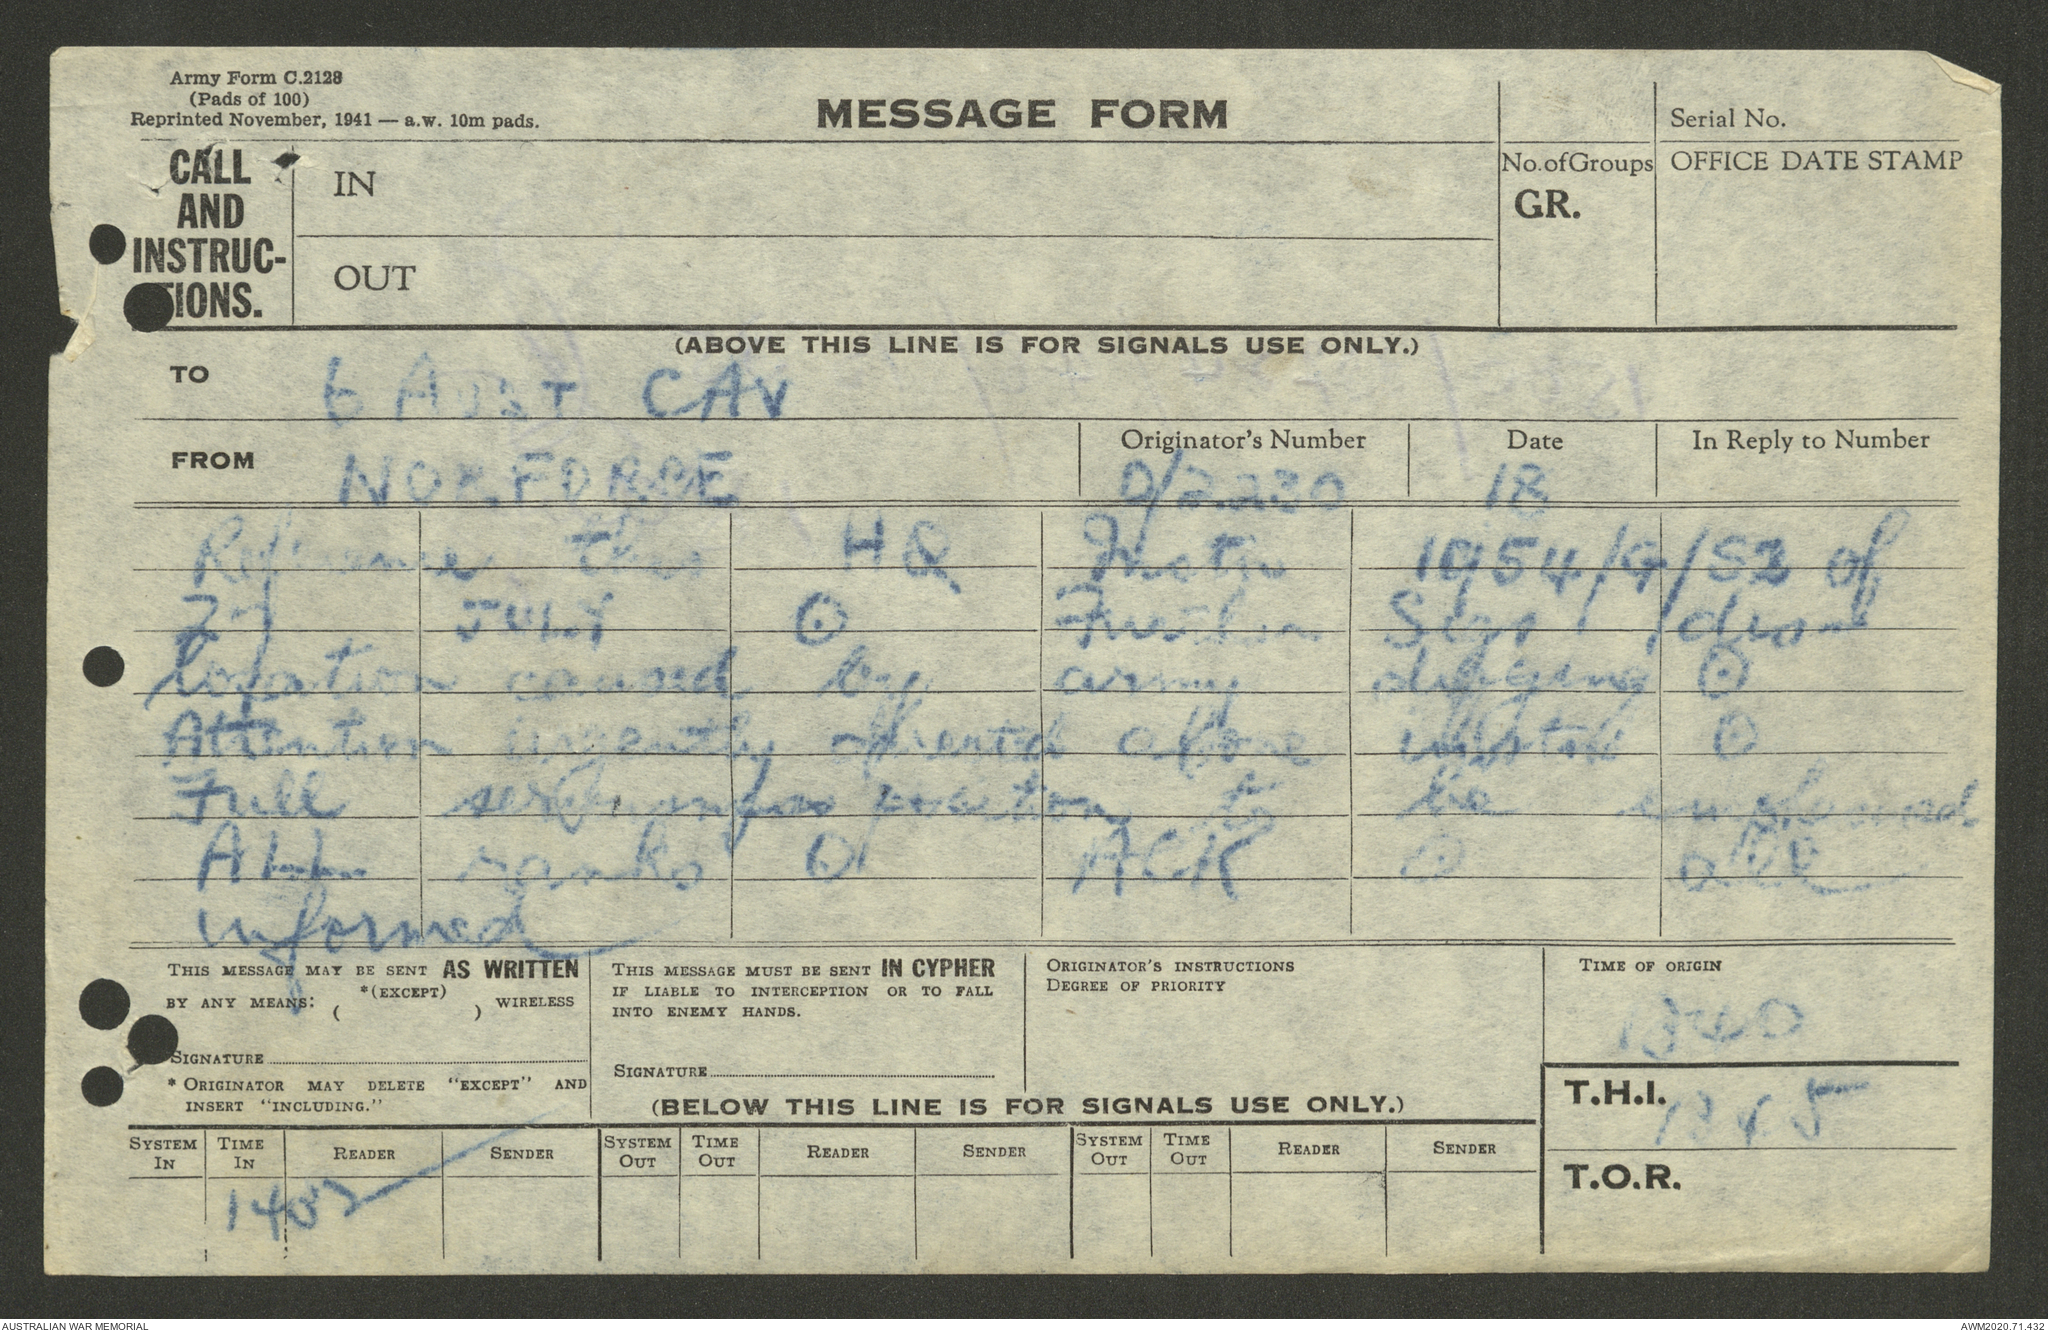 Army Form C.2128
(Pads of 100)
Reprinted November, 1941 — a.w. 10m pads.
MESSAGE FORM
Serial No.
CALL AND INSTRUC-TIONS.
IN
No. of Groups
GR.
OFFICE DATE STAMP
OUT
(ABOVE THIS LINE IS FOR SIGNALS USE ONLY.)
TO
6 AUST CAV
FROM
NORFORCE
Originator's Number
O/2230
Date
18
In Reply to Number
Reference this HQ Instn 1954/G/52 of
27 JULY ⊙ Further Sigs
location caused by army ⊙
Attention urgently above ⊙
Full to be
ALL ranks ⊙ ACK ⊙ all
informed
THIS MESSAGE MAY BE SENT AS WRITTEN
BY ANY MEANS: *(EXCEPT) ( ) WIRELESS
SIGNATURE
* ORIGINATOR MAY DELETE "EXCEPT" AND
INSERT "INCLUDING."
THIS MESSAGE MUST BE SENT IN CYPHER
IF LIABLE TO INTERCEPTION OR TO FALL
INTO ENEMY HANDS.
SIGNATURE
ORIGINATOR'S INSTRUCTIONS
DEGREE OF PRIORITY
TIME OF ORIGIN
T.H.I.
1345
T.O.R.
(BELOW THIS LINE IS FOR SIGNALS USE ONLY.)
SYSTEM IN
TIME IN
READER
SENDER
SYSTEM OUT
TIME OUT
READER
SENDER
SYSTEM OUT
TIME OUT
READER
SENDER
AUSTRALIAN WAR MEMORIAL
AWM2020.71.432